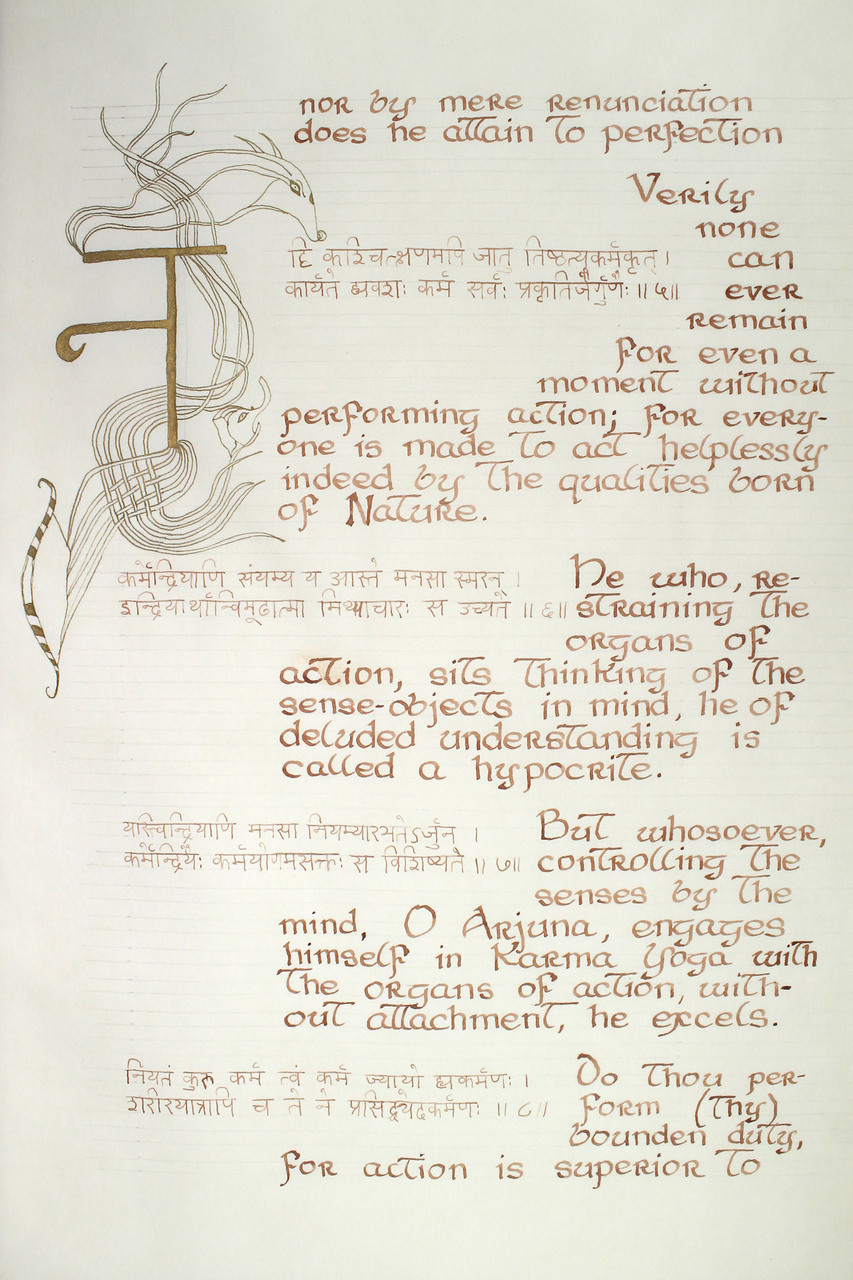 nor by mere renunciation
does he attain to perfection
Verily
none
न
हि कश्चित्क्षणमपि जातु तिष्ठत्यकर्मकृत् ।
can
कार्यते ह्यवशः कर्म सर्वः प्रकृतिजैर्गुणैः ॥ ५ ॥
ever
remain
for even a
moment without
performing action; for every-
one is made to act helplessly
indeed by the qualities born
of Nature.
कर्मेन्द्रियाणि संयम्य य आस्ते मनसा स्मरन् ।
He who, re-
इन्द्रियार्थान्विमूढात्मा मिथ्याचारः स उच्यते ॥ ६ ॥
straining the
organs of
action, sits thinking of the
sense-objects in mind, he of
deluded understanding is
called a hypocrite.
यस्त्विन्द्रियाणि मनसा नियम्यारभतेऽर्जुन ।
But whosoever,
कर्मेन्द्रियैः कर्मयोगमसक्तः स विशिष्यते ॥ ७ ॥
controlling the
senses by the
mind, O Arjuna, engages
himself in Karma Yoga with
the organs of action, with-
out attachment, he excels.
नियतं कुरु कर्म त्वं कर्म ज्यायो ह्यकर्मणः ।
Do thou per-
शरीरयात्रापि च ते न प्रसिद्ध्येदकर्मणः ॥ ८ ॥
form (thy)
bounden duty,
for action is superior to